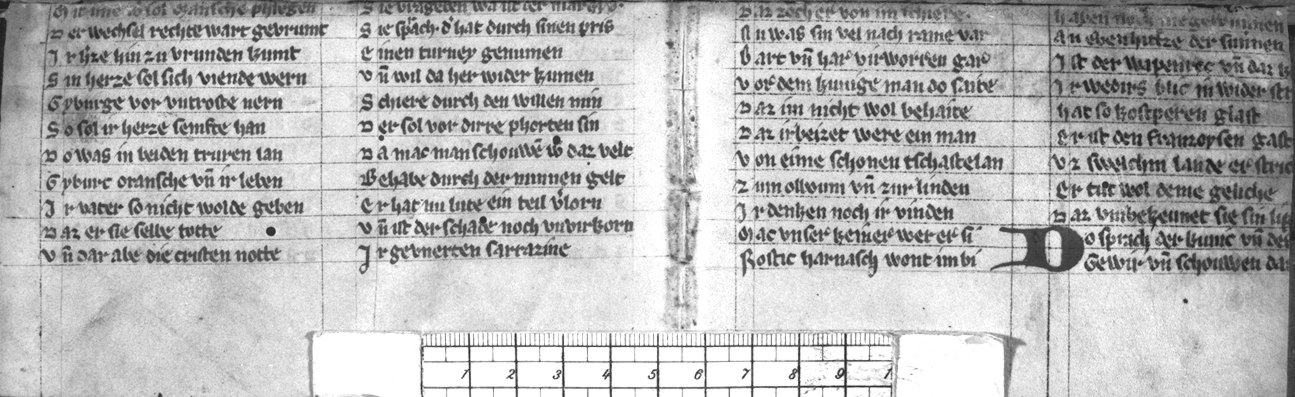 Der wechsel rechte wart gevrumt
Ir h̾ze hin zu vrunden kumt
Sin herze sol sich viende wern
Gyburge vor vntroste nern
So sol ir herze semfte han
Do was in beiden truren lan
Gyburc oransche vn̄ ir leben
Ir vater so nicht wolde geben
Daz er sie selbe totte
Vn̄ dar abe die cristen notte
Sie sp̾ach d̾ hat durch sinen pris
Einen turney genumen
Vn̄ wil da her wider kumen
Schiere durch den willen min
Der sol vor dirre phorten sin
Da mac man schouwē w̾ daz velt
Behabe durch der minnen gelt
Er hat im lute ein teil v̾lorn
Vn̄ ist der schade noch vnvirkorn
Ir gevnerten sarrazine
Daz zoch er von im schiere
Nu was sin vel nach rame var
Bart vn̄ har virworren gar
Vor dem kunige man do saite
Daz im nicht wol behaite
Daz irbeizet were ein man
Von eime schonen tschastelan
Zum olboum vn̄ zur linden
Ir denken noch ir vinden
Mac vnser keiner wer er si
Rostic harnasch wont im bi
haben noch
An ebenhutze der sunnen
Ist der wapenroc vn̄ daz
Ir wedirs blic in wider
hat so kostperen glast
Er ist den Franzoysen gast
Vz swelchim lande er
Er tut wol deme geliche
Daz vnbekennet sie sin
Do sprach der kunic vn̄
Gewir vn̄ schouwen
1 2 3 4 5 6 7 8 9 1